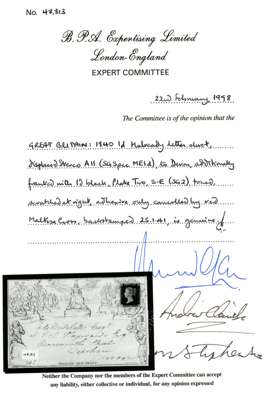 No. 48,813
B.P.A. Expertising Limited
London-England
EXPERT COMMITTEE
22nd February 1998
The Committee is of the opinion that the
GREAT BRITAIN: 1840 1d Mulready letter sheet,
Stereo A11 (SG Spec ME1d), to Devon, additionally
franked with 1d black, Plate Two, S-E (SG2) toned,
scratched at right, adhesive only cancelled by red
Maltese Cross, backstamped 25.1.41, is genuine
Neither the Company nor the members of the Expert Committee can accept
any liability, either collective or individual, for any opinion expressed